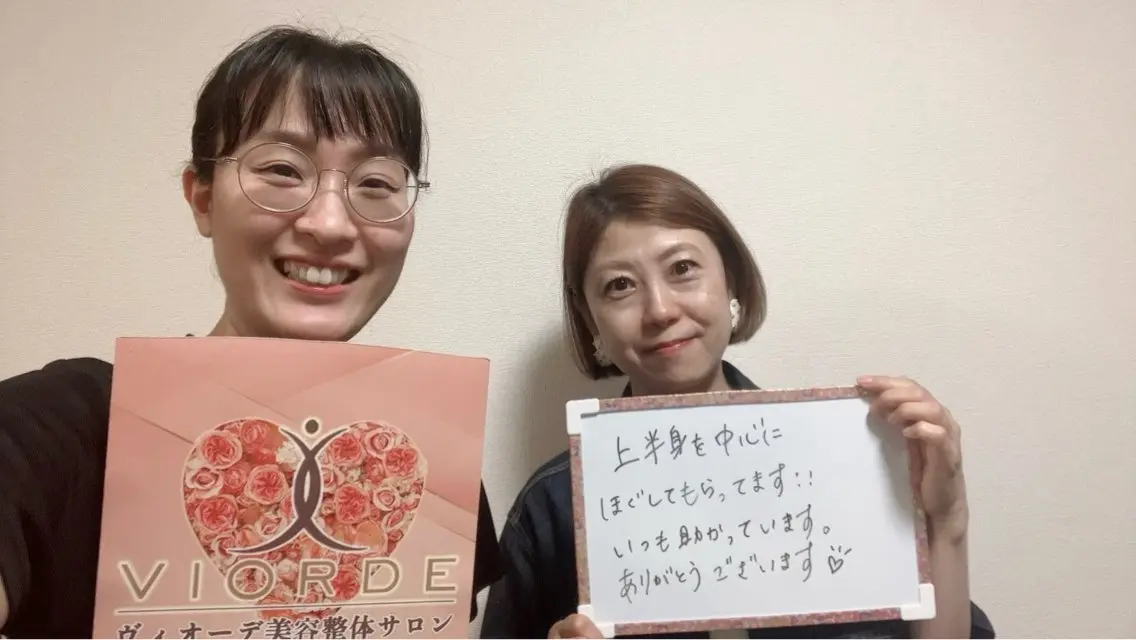 VIORDE
ヴィオーデ美容整体サロン
上半身を中心に
ほぐしてもらってます!!
いつも助かっています。
ありがとうございます♡